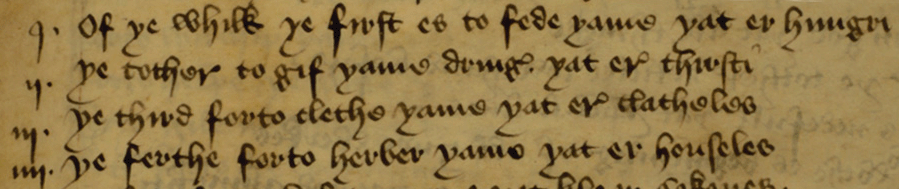 j. Of ye whilk ye first es to fede yame yat er hungri
ij. ye tother to gif yame dring. yat er thirsti
iij. ye third forto clethe yame yat er clatheles
iiij. ye ferthe forto herber yame yat er houseles